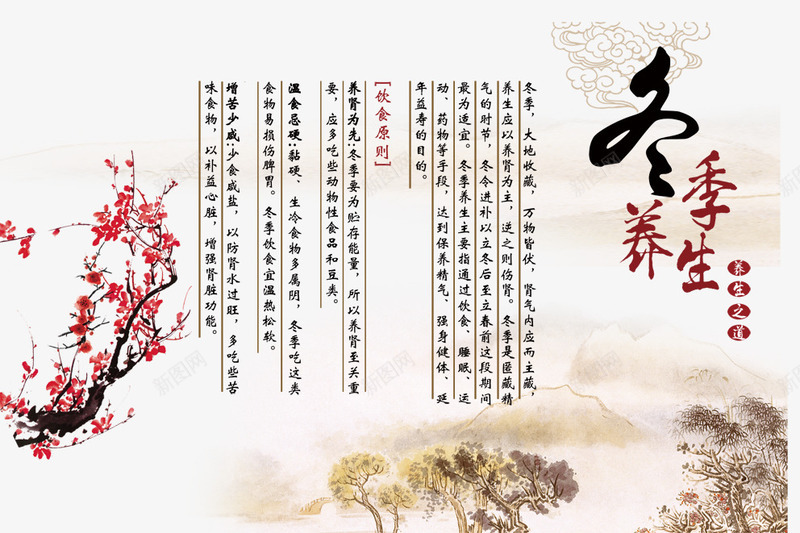 冬季
养生
养生之道
冬季，大地收藏，万物皆伏，肾气内应而主藏，
养生应以养肾为主，逆之则伤肾。冬季是匿藏精
气的时节，冬令进补以立冬后至立春前这段期间
最为适宜。冬季养生主要指通过饮食、睡眠、运
动、药物等手段，达到保养精气、强身健体、延
年益寿的目的。
[饮食原则]
养肾为先:冬季要为贮存能量，所以养肾至关重
要，应多吃些动物性食品和豆类。
温食忌硬:黏硬、生冷食物多属阴，冬季吃这类
食物易损伤脾胃。冬季饮食宜温热松软。
增苦少咸:少食咸盐，以防肾水过旺，多吃些苦
味食物，以补益心脏，增强肾脏功能。